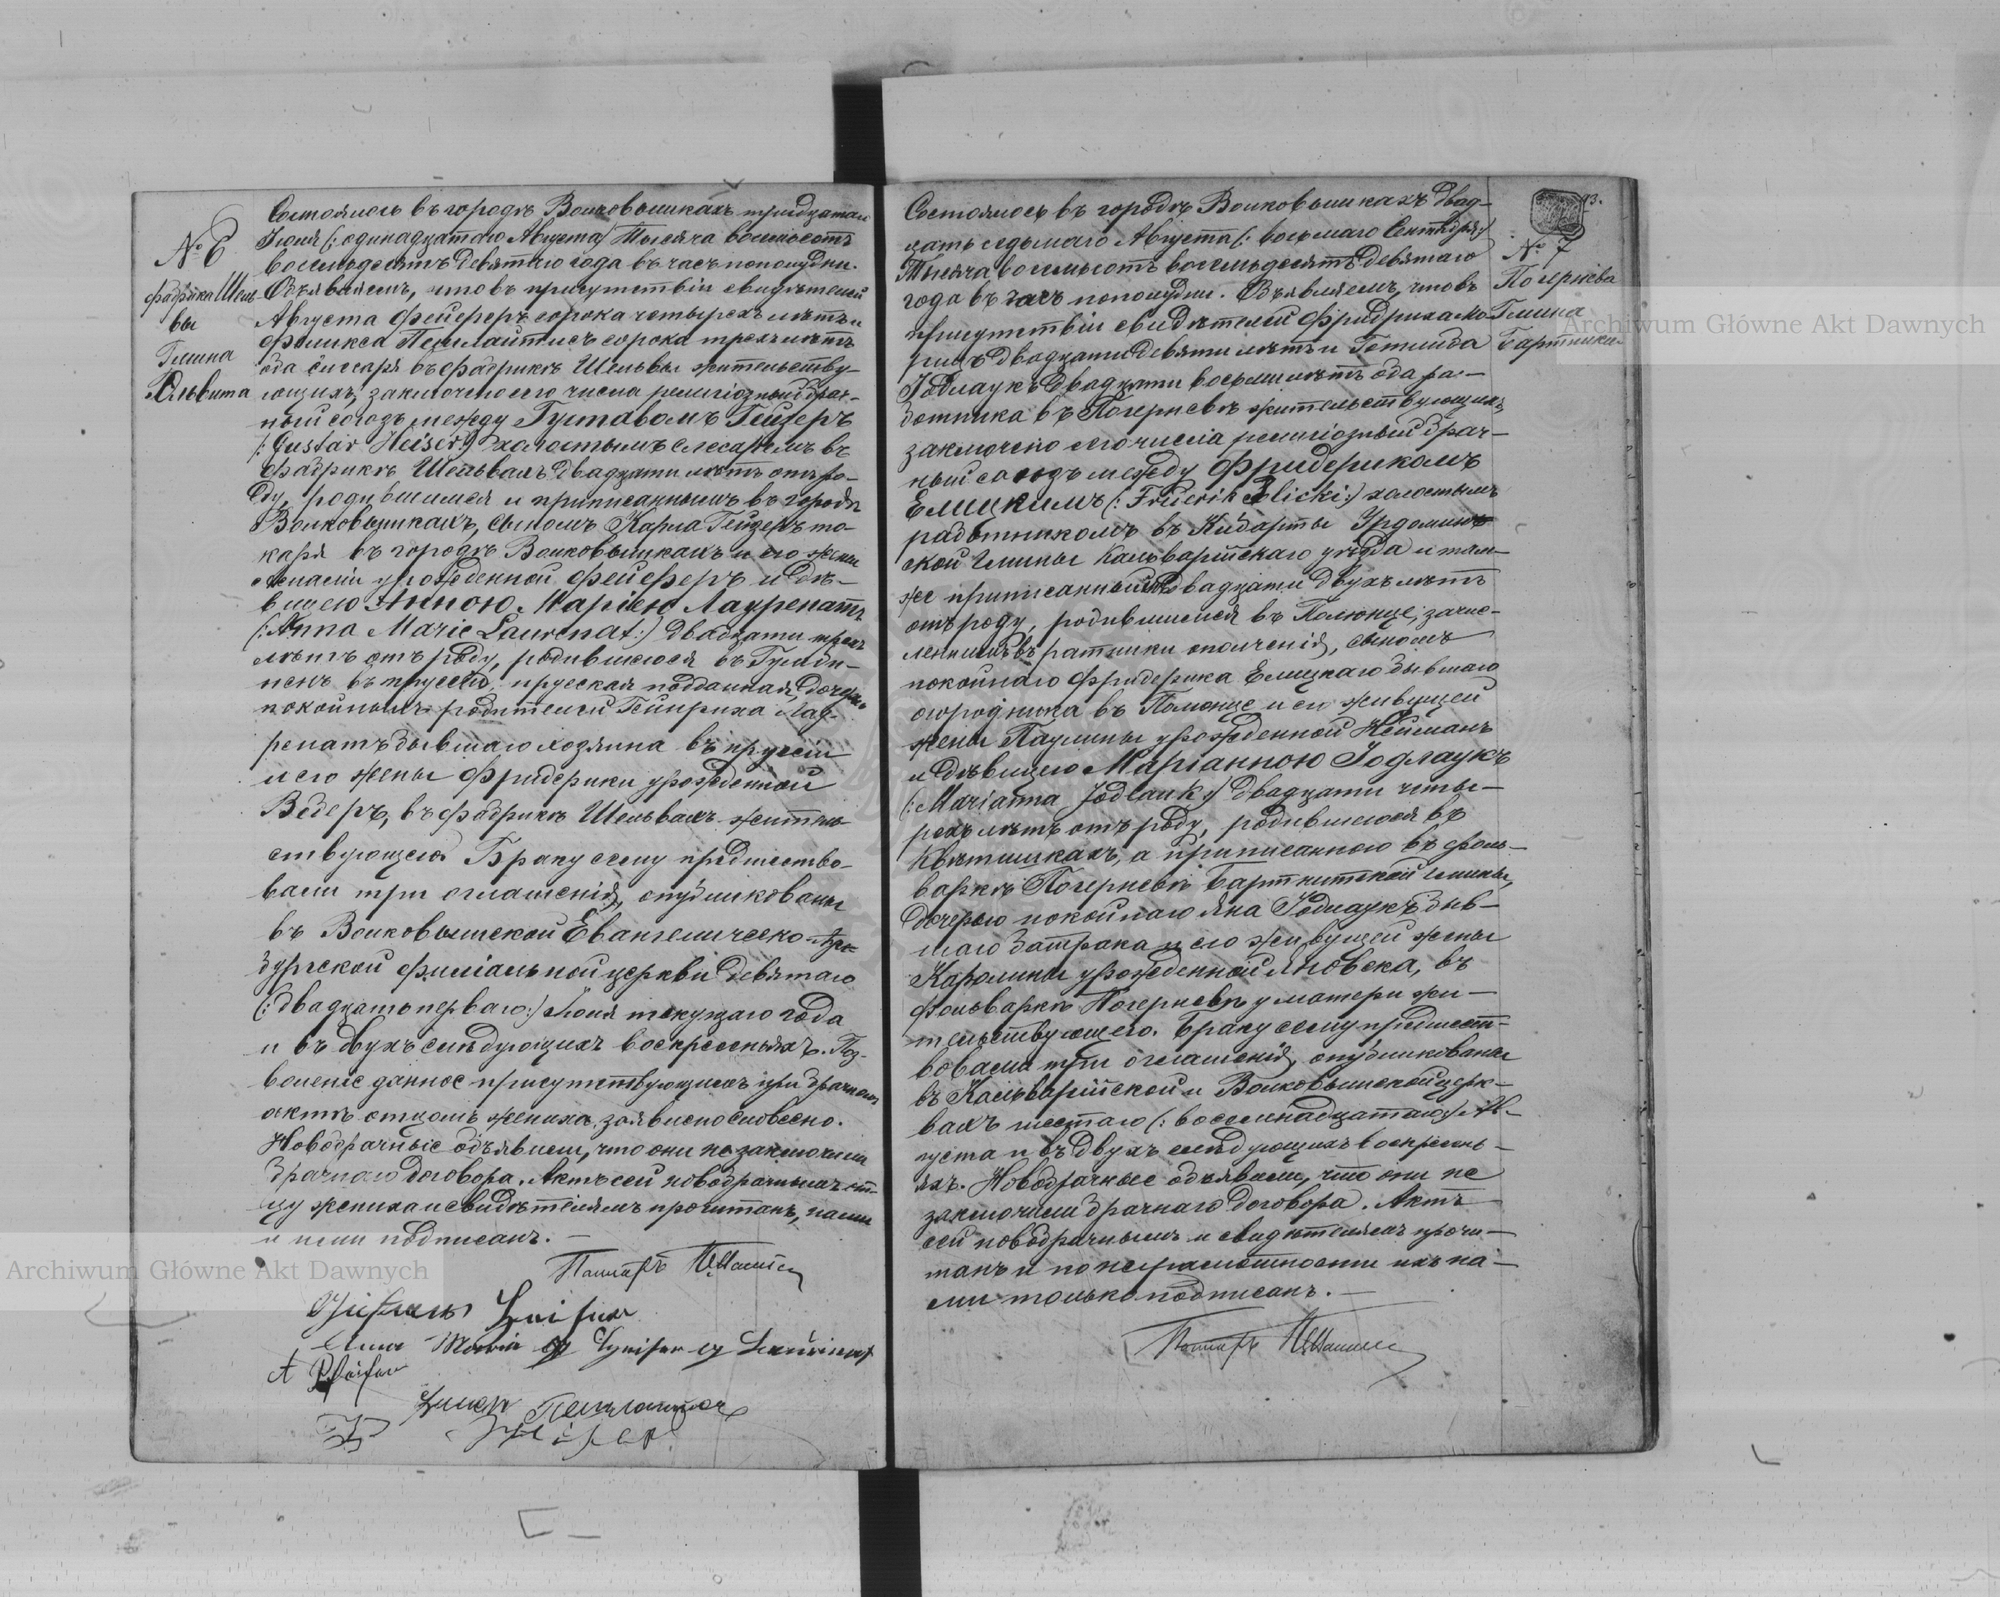 № 6
Фабрика Шель-
вы
Гмина
Ольвита
Состоялось въ городѣ Волковышкахъ тридцатаго
Іюля (: одинадцатаго Августа) Тысяча восемьсотъ
восемьдесятъ девятаго года въ часъ пополудни.
Объявляемъ, что въ присутствіи свидѣтелей
Августа Фейферъ сорока четырехъ лѣтъ и
Феликса сорока трехъ лѣтъ
оба слесаря въ фабрикѣ Шельвы жительству-
ющихъ, заключено сего числа религіозный брач-
ный союзъ между Густавомъ Гейзеръ
(: Gustav Heiser:) холостымъ слесаремъ въ
фабрикѣ Шельвахъ двадцати лѣтъ отъ ро-
ду, родившимся и приписаннымъ въ городѣ
Волковышкахъ, сыномъ Карла Гейзеръ то-
каря въ городѣ Волковышкахъ и его жены
урожденной Фейферъ и дѣ-
вицею Анною Маріею Лауренатъ
(: Anna Marie Laurenat:) двадцати трехъ
лѣтъ отъ роду, родившеюся въ Гумби-
ненъ въ пруссіи, прусская подданная, дочерью
покойныхъ родителей Гейнриха Лау-
ренатъ бывшаго хозяина въ пруссіи
и его жены Фридерики урожденной
Ведеръ, въ фабрикѣ Шельвахъ житель-
ствующею. Браку сему предшество-
вали три оглашенія, опубликованы
въ Волковышской Евангелическо-Аугс-
бургской филіальной церкви девятаго
(: двадцать перваго:) Іюля текущаго года
и въ двухъ слѣдующихъ воскресеньяхъ. Поз-
воленіе данное присутствующимъ при брачномъ
актѣ отцомъ жениха, заявлено словесно.
Новобрачные объявили, что они не заключили
брачнаго договора. Актъ сей новобрачнымъ от-
цу жениха и свидѣтелямъ прочитанъ, нами
и ими подписанъ. —
Пасторъ
A Pfeifer
Archiwum Główne Akt Dawnych
93.
№ 7
Погернева
Гмина
Бартники
Состоялось въ городѣ Волковышкахъ двад-
цать седьмаго Августа (: восьмаго Сентября:)
Тысяча восемьсотъ восемьдесятъ девятаго
года въ часъ пополудни. Объявляемъ, что въ
присутствіи свидѣтелей Фридриха
двадцати девяти лѣтъ и Готлиба
Іодлаукъ двадцати восьми лѣтъ оба ра-
ботника въ Погерневѣ жительствующихъ,
заключено сего числа религіозный брач-
ный союзъ между Фридерикомъ
Елицкимъ (: Friderik Jelicki:) холостымъ
работникомъ въ Кибарты Урдомин-
ской гмины Кальварійскаго уѣзда и там-
же приписаннымъ двадцати двухъ лѣтъ
отъ роду, родившемся въ Полюнце, зачис-
леннымъ въ ратники ополченія, сыномъ
покойнаго Фридерика Елицкаго бывшаго
огородника въ Полюнце и его живущей
жены Паулины урожденной Нейманъ
и дѣвицею Маріанною Іодлаукъ
(: Marianna Jodlauk:) двадцати четы-
рехъ лѣтъ отъ роду, родившеюся въ
а приписанною въ фоль-
варкѣ Погерневѣ Бартнитской гмины,
дочерью покойнаго Яна Іодлаукъ быв-
шаго батрака и его живущей жены
Каролины урожденной Яновска, въ
фольваркѣ Погерневѣ у матери жи-
тельствующею. Браку сему предшест-
вовали три оглашенія, опубликованы
въ Кальварійской и Волковышской церк-
вахъ шестаго (: восемнадцатаго:) Ав-
густа и въ двухъ слѣдующихъ воскресень-
яхъ. Новобрачные объявили, что они не
заключили брачнаго договора. Актъ
сей новобрачнымъ и свидѣтелямъ прочи-
танъ и по неграмотности ихъ на-
ми только подписанъ. —
Пасторъ
Archiwum Główne Akt Dawnych